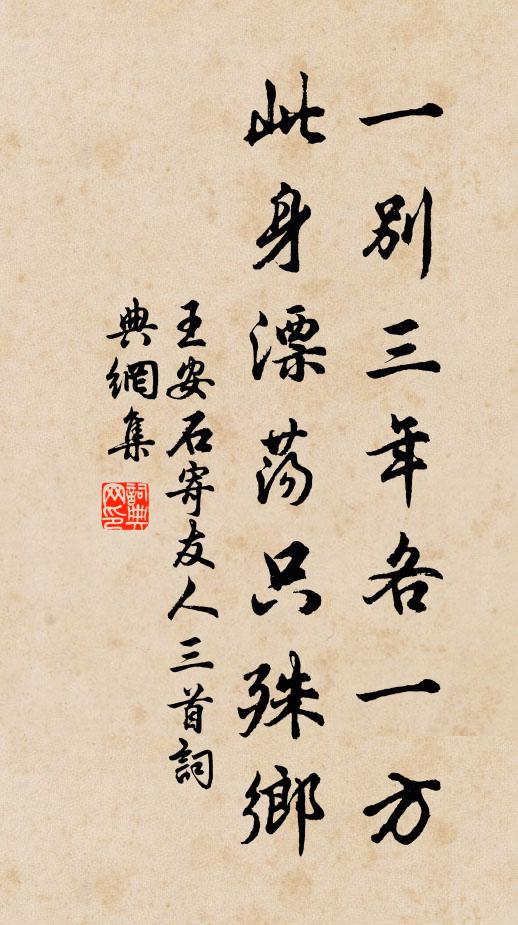 一别三年各一方
此身漂荡只殊鄉
王安石寄友人三首詞
典網集
詞典网印